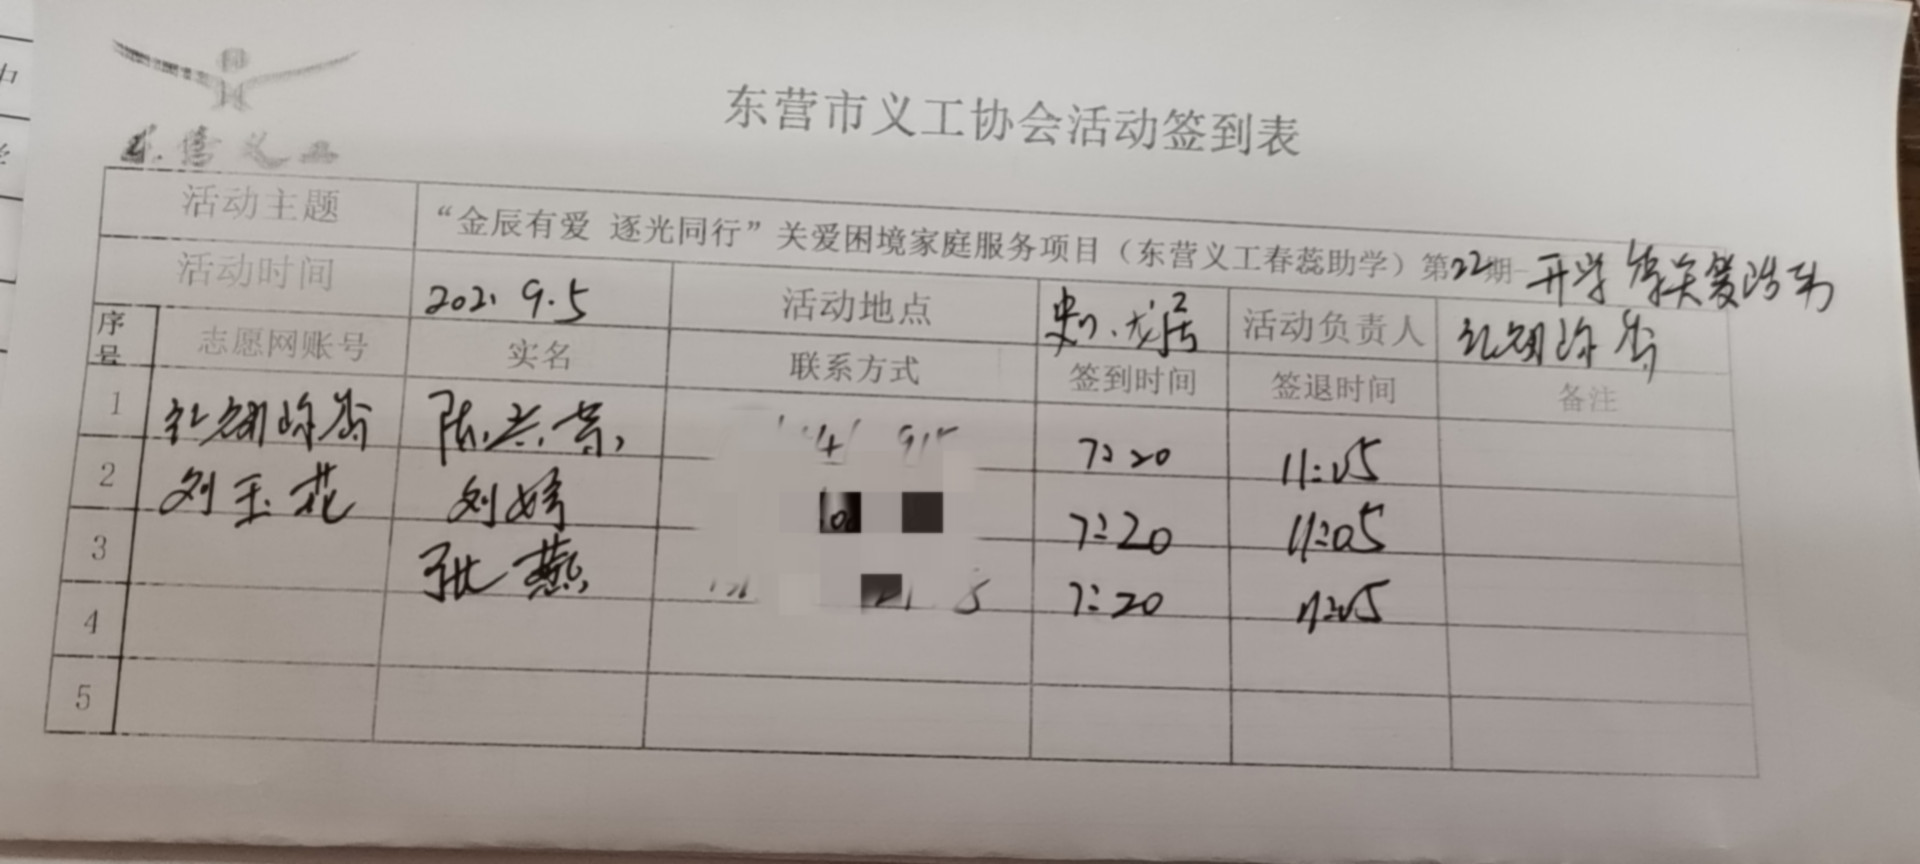 东营义工
东营市义工协会活动签到表
活动主题 “金辰有爱 逐光同行”关爱困境家庭服务项目（东营义工春蕊助学）第22期 开学季关爱活动
活动时间 2021.9.5 活动地点 活动负责人
序号 志愿网账号 实名 联系方式 签到时间 签退时间 备注
1 陈兰芳 7:20 11:05
2 刘玉花 刘婷 7:20 11:05
3 张燕 7:20 11:05
4
5